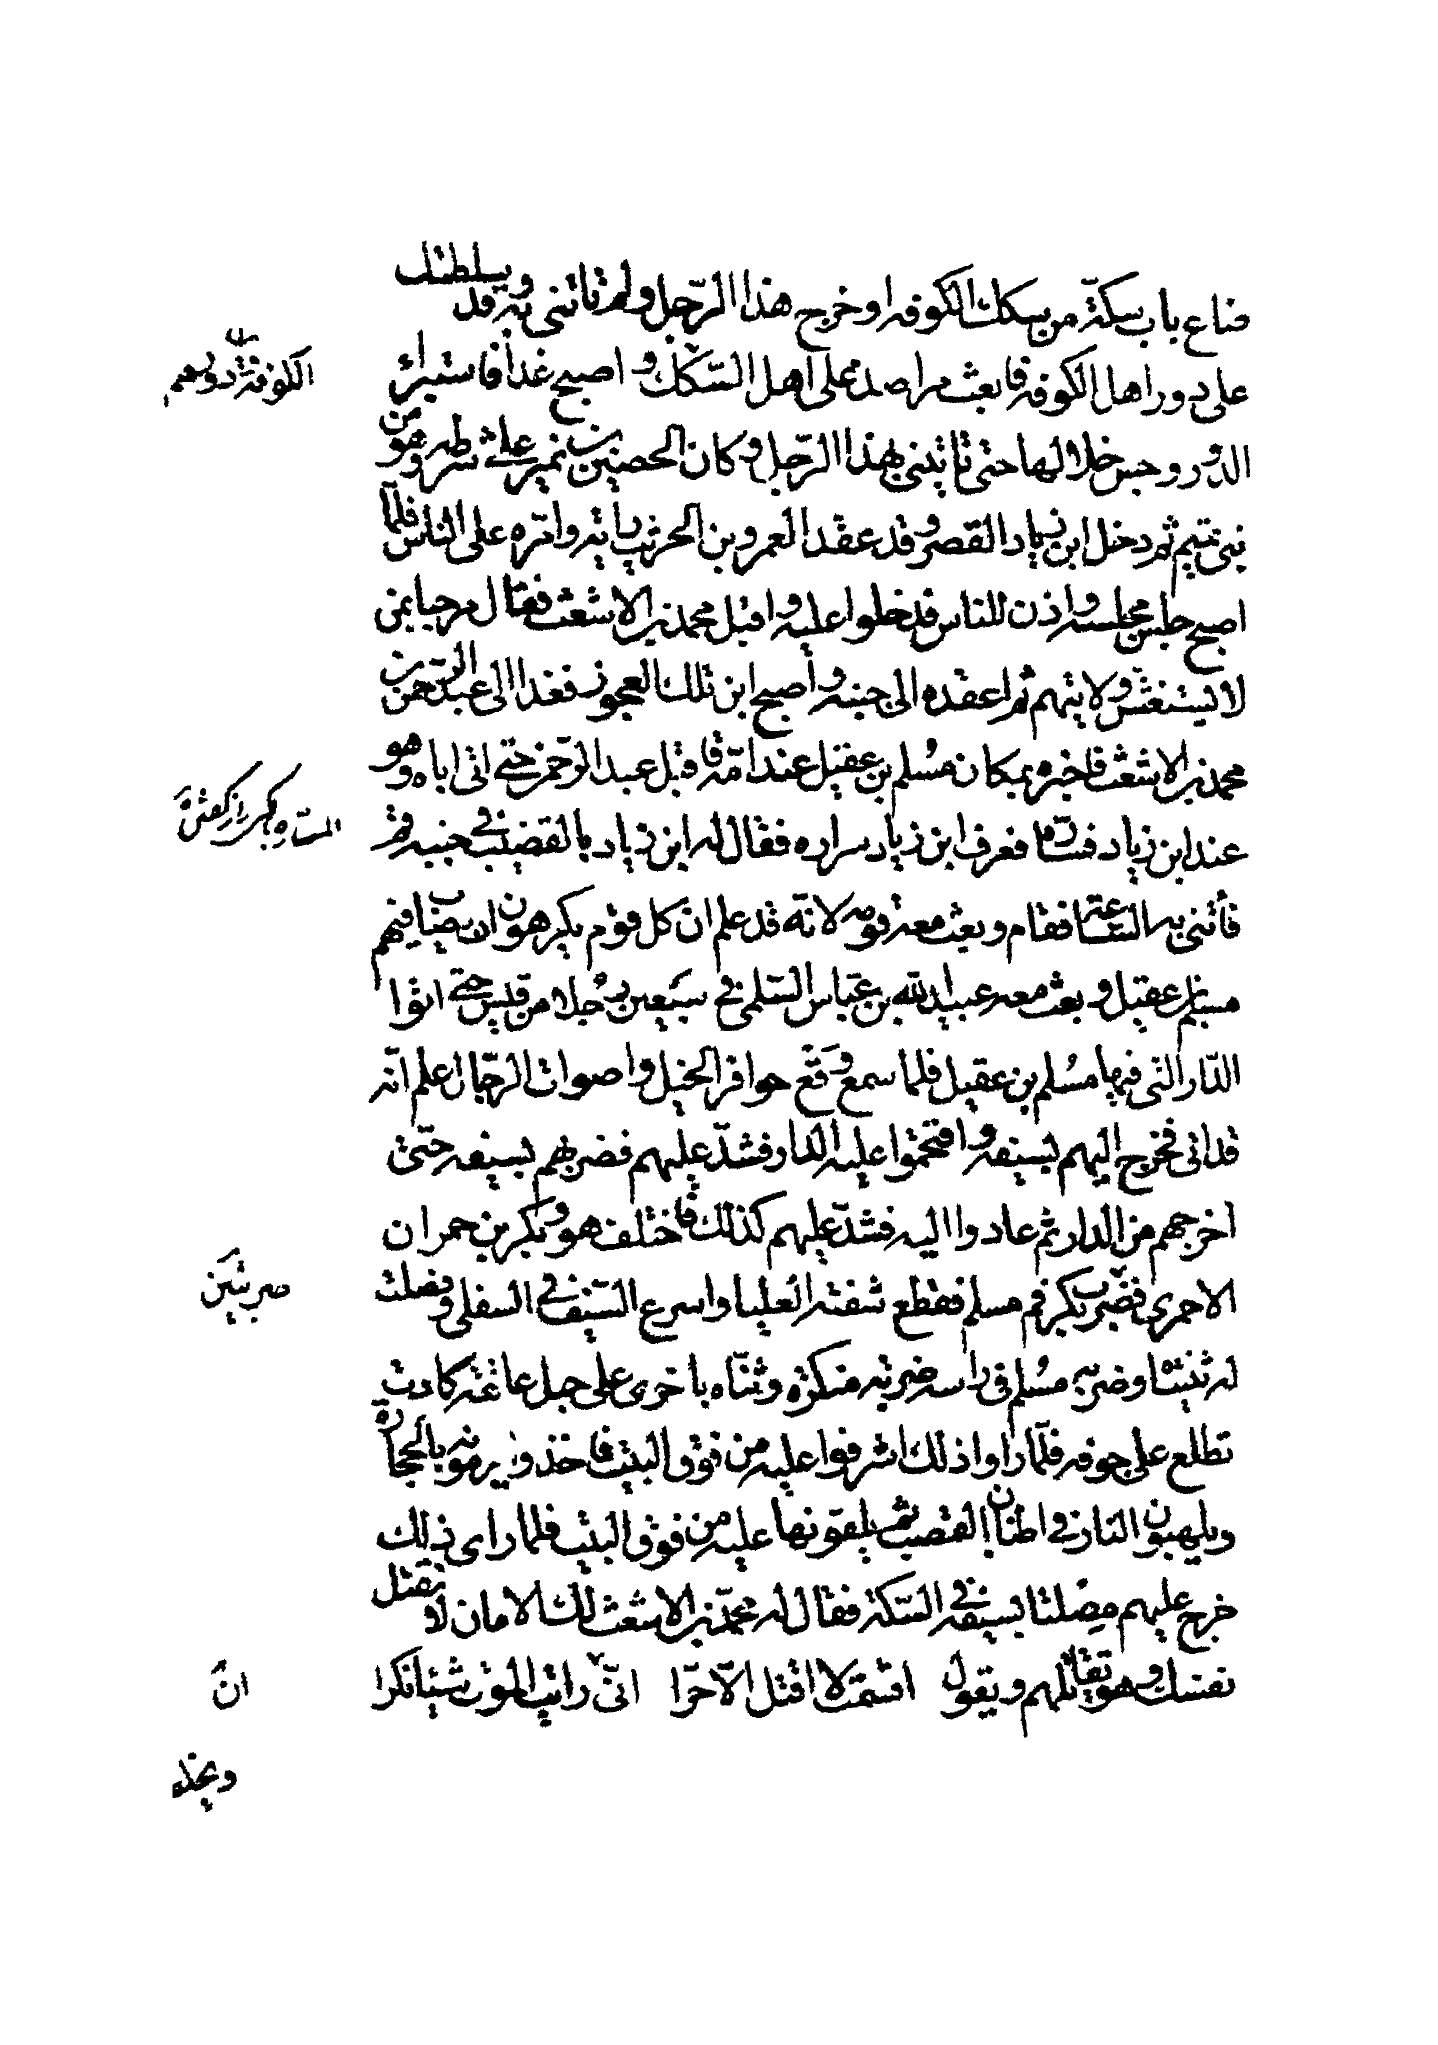 ضاع باب سكة من سكك الكوفه او خرج هذا الرّجل ولم تاتنى به وقد سلطتك
على دور اهل الكوفه فابعث مراصد على اهل السّكك و اصبح غدا فاستبراء
الدّور وجس خلالها حتى تاتينى بهذا الرّجل و كان الحصين بن نمير على شرطه وهو من
بنى تميم ثم دخل ابن زياد القصر و قد عقد لعمرو بن الحريث راية وامّره على الناس فلمّا
اصبح جلس مجلسه و اذن للناس فدخلوا عليه و اقبل محمد بن الاشعث فقال مرحبا بمن
لا يستغش ولا يتهم ثم اقعده الى جنبه و اصبح ابن تلك العجوز فغدا الى عبد الرّحمن بن
محمد بن الاشعث فاخبره بمكان مسلم بن عقيل عند امّه فاقبل عبد الرّحمن حتى اتى اباه وهو
عند ابن زياد فسارّه فعرف ابن زياد سراره فقال له ابن زياد بالقضيب فى جنبه قم
فأتنى به السّاعة فقام وبعث معه قومه لانّه قد علم ان كل قوم يكرهون ان يصاب فيهم
مسلم بن عقيل و بعث معه عبيد الله بن عبّاس السّلمى فى سبعين رجلا من قيس حتى اتوا
الدّار التى فيها مسلم بن عقيل فلما سمع وقع حوافر الخيل و اصوات الرّجال علم انّه
قد اتى فخرج اليهم بسيفه و اقتحموا عليه الدار فشدّ عليهم فضربهم بسيفه حتّى
اخرجهم من الدار ثم عادوا اليه فشدّ عليهم كذلك فاختلف هو و بكر بن حمران
الاحمرى فضرب بكر فم مسلم فقطع شفته العليا واسرع السّيف فى السفلى و فصلت
له ثنيتاه وضربه مسلم فى راسه ضربة منكرة وثنّاه باخرى على حبل عاتقه كادت
تطلع على جوفه فلمّا راوا ذلك اشرفوا عليه من فوق البيت فاخذوا يرمونه بالحجارة
ويلهبون النار فى اطنان القصب ثم يلقونها عليه من فوق البيت فلما راى ذلك
خرج عليهم مصلتا بسيفه فى السّكة فقال له محمّد بن الاشعث لك الامان لا تقتل
نفسك و هو يقاتلهم و يقول اقسمت لا اقتل الاّ حرّا انّى رايت الموت شيئا نكرا
الكوفة دورهم
ضربتين
انّ